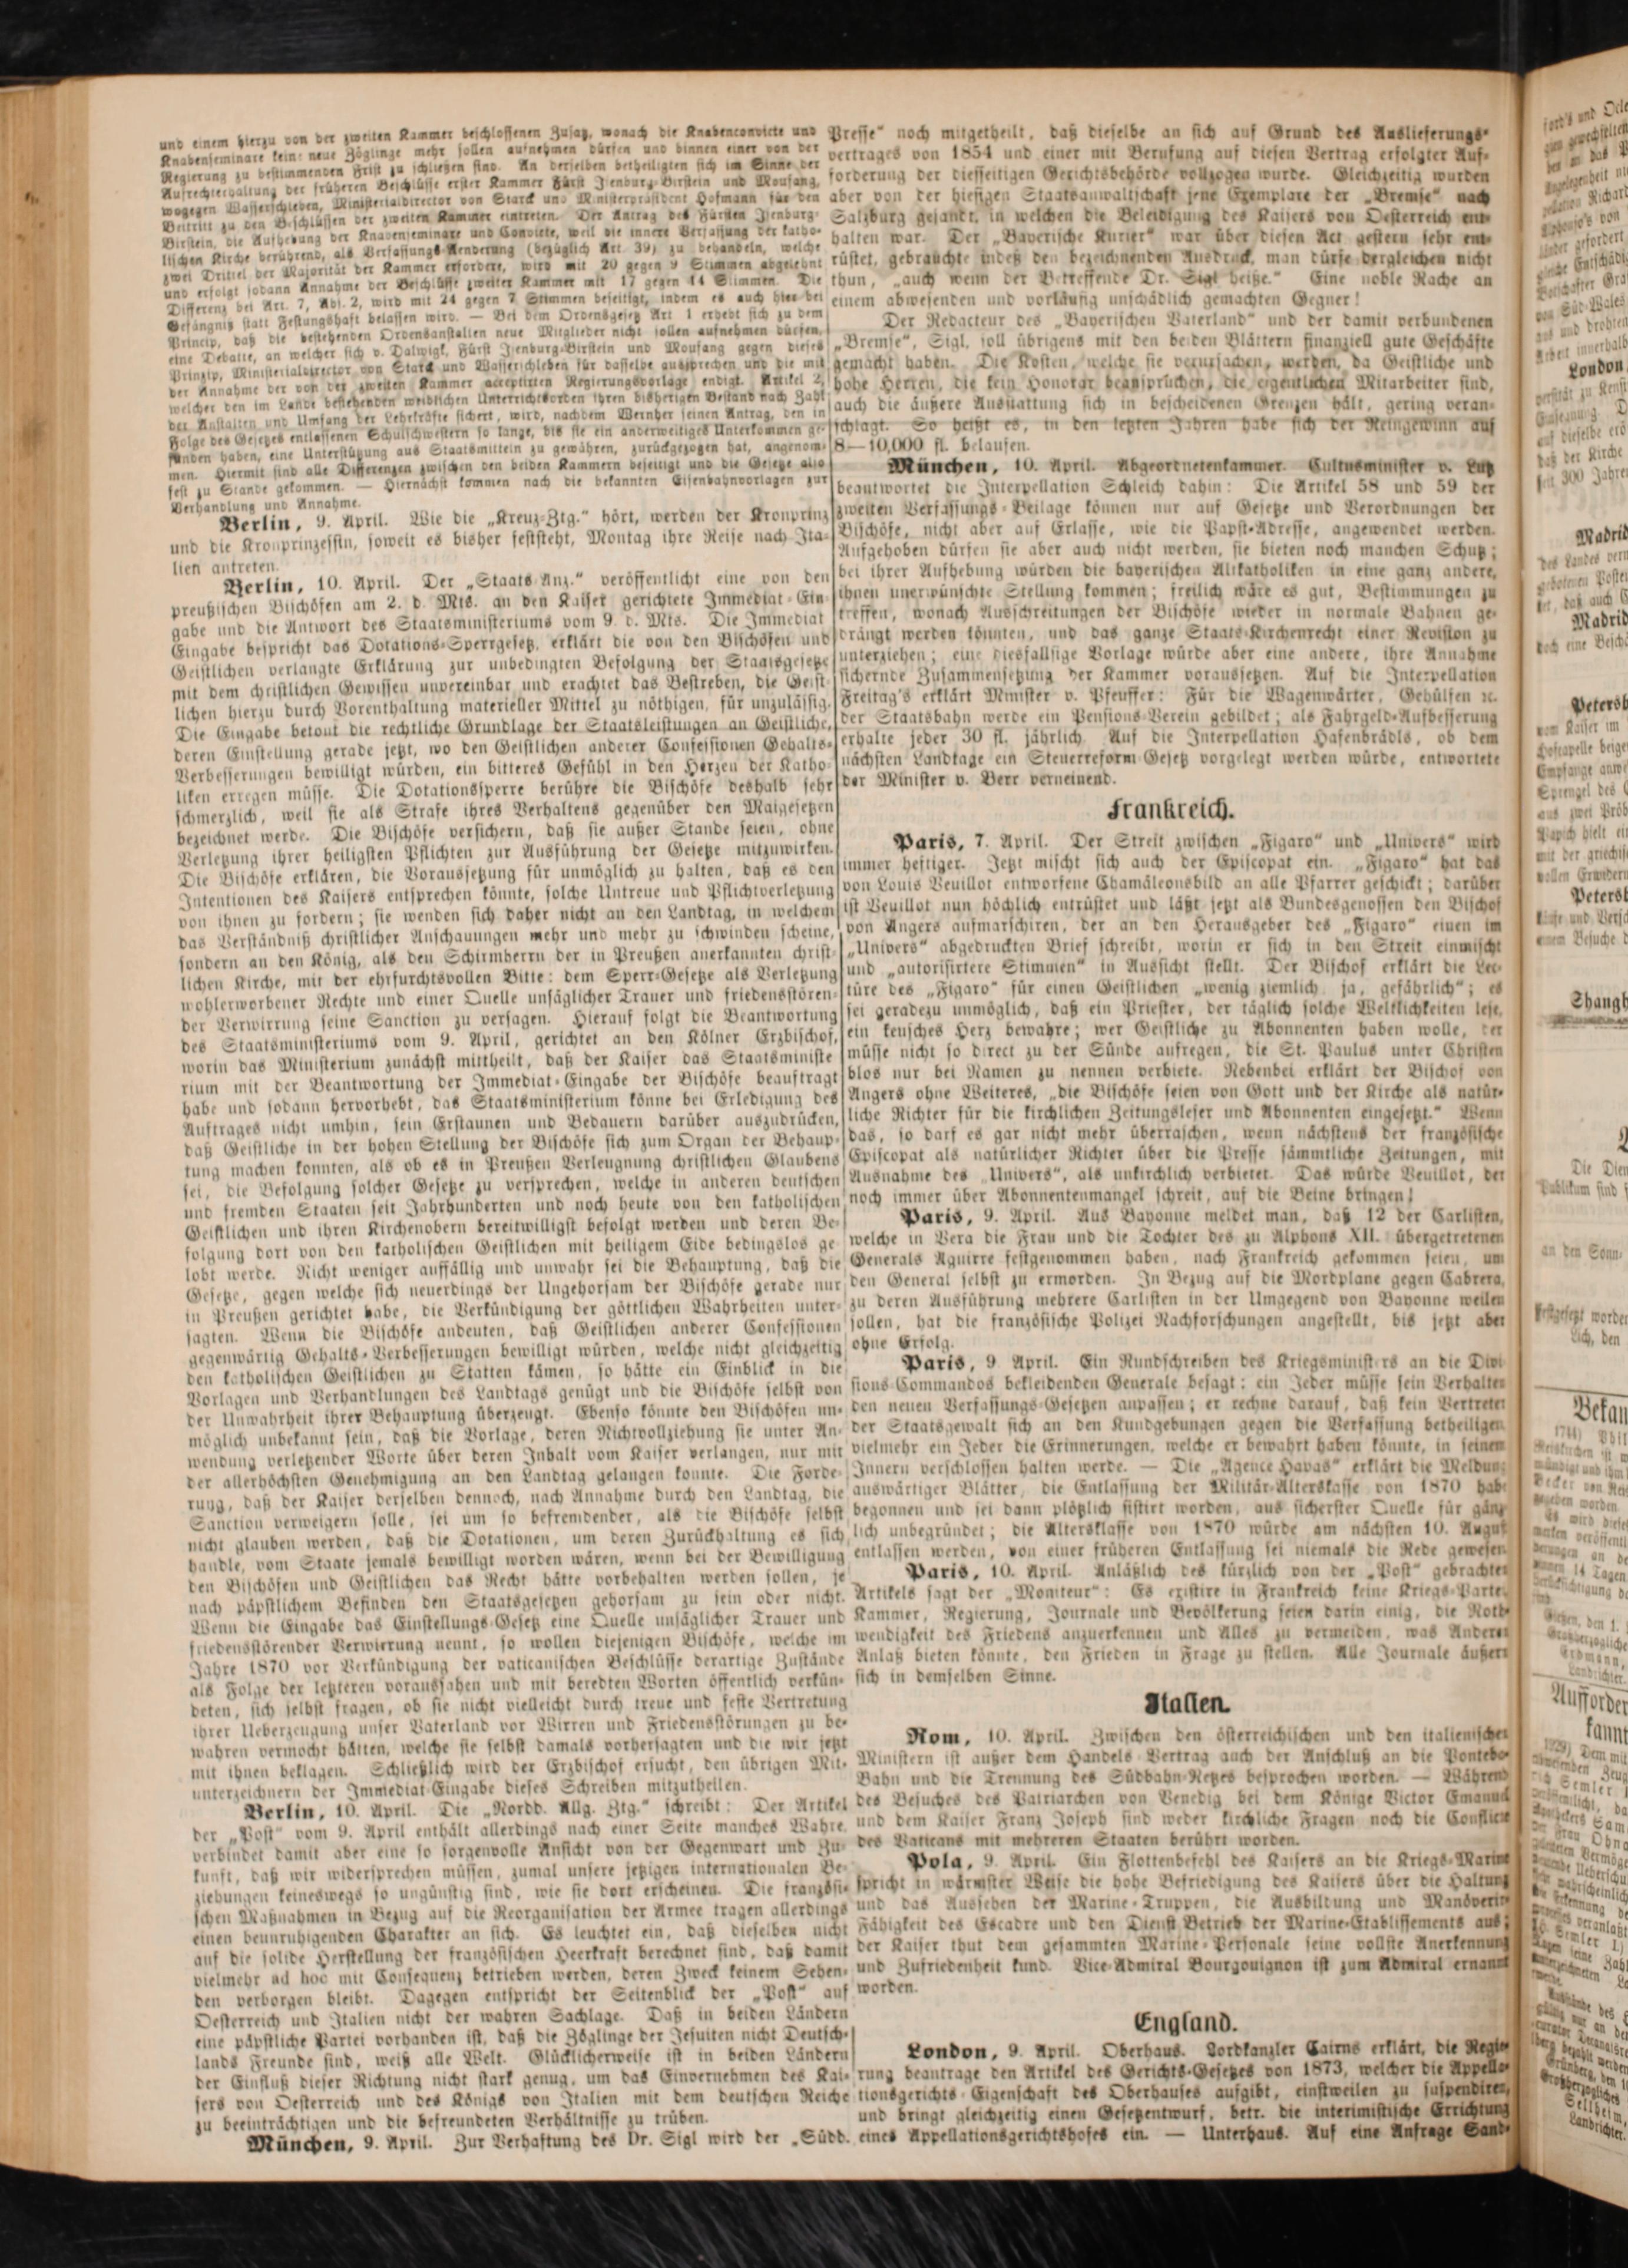 und einem hierzu von der zweiten Kammer beschlossenen Zusatz, wonach die Knabenconvicte und
Knabenseminare keine neue Zöglinge mehr sollen aufnehmen dürfen und binnen einer von der
Regierung zu bestimmenden Frist zu schließen sind. An derselben betheiligten sich im Sinne der
Aufrechterhaltung der früheren Beschlüsse erster Kammer Fürst Isenburg-Birstein und Moufang,
wogegen Wasserschleben, Ministerialdirector von Starck und Ministerpräsident Hofmann für den
Beitritt zu den Beschlüssen der zweiten Kammer eintreten. Der Antrag des Fürsten Isenburg-
Birstein, die Aufhebung der Knabenseminare und Convicte, weil die innere Verfassung der katho-
lischen Kirche berührend, als Verfassungs-Aenderung (bezüglich Art. 39) zu behandeln, welche
zwei Drittel der Majorität der Kammer erfordere, wird mit 20 gegen 9 Stimmen abgelehnt
und erfolgt sodann Annahme der Beschlüsse zweiter Kammer mit 17 gegen 14 Stimmen. Die
Differenz bei Art. 7, Abs. 2, wird mit 24 gegen 7 Stimmen beseitigt, indem es auch hier bei
Gefängniß statt Festungshaft belassen wird. — Bei dem Ordensgesetz Art 1 erhebt sich zu dem
Princip, daß die bestehenden Ordensanstalten neue Mitglieder nicht sollen aufnehmen dürfen,
eine Debatte, an welcher sich v. Dalwigk, Fürst Isenburg-Birstein und Moufang gegen dieses
Prinzip, Ministerialdirector von Starck und Wasserschleben für dasselbe aussprechen und die mit
der Annahme der von der zweiten Kammer acceptirten Regierungsvorlage endigt. Artikel 2,
welcher den im Lande bestehenden weiblichen Unterrichtsorden ihren bisherigen Bestand nach Zahl
der Anstalten und Umfang der Lehrkräfte sichert, wird, nachdem Wernher seinen Antrag, den in
Folge des Gesetzes entlassenen Schulschwestern so lange, bis sie ein anderweitiges Unterkommen ge-
funden haben, eine Unterstützung aus Staatsmitteln zu gewähren, zurückgezogen hat, angenom-
men. Hiermit sind alle Differenzen zwischen den beiden Kammern beseitigt und die Gesetze also
fest zu Stande gekommen. — Hiernächst kommen nach die bekannten Eisenbahnvorlagen zur
Verhandlung und Annahme.
Berlin, 9. April. Wie die „Kreuz-Ztg.“ hört, werden der Kronprinz
und die Kronprinzessin, soweit es bisher feststeht, Montag ihre Reise nach Ita-
lien antreten.
Berlin, 10. April. Der „Staats-Anz.“ veröffentlicht eine von den
preußischen Bischöfen am 2. d. Mts. an den Kaiser gerichtete Immediat-Ein-
gabe und die Antwort des Staatsministeriums vom 9. d. Mts. Die Immediat
Eingabe bespricht das Dotations-Sperrgesetz, erklärt die von den Bischöfen und
Geistlichen verlangte Erklärung zur unbedingten Befolgung der Staatsgesetze
mit dem christlichen Gewissen unvereinbar und erachtet das Bestreben, die Geist-
lichen hierzu durch Vorenthaltung materieller Mittel zu nöthigen, für unzulässig.
Die Eingabe betont die rechtliche Grundlage der Staatsleistungen an Geistliche,
deren Einstellung gerade jetzt, wo den Geistlichen anderer Confessionen Gehalts-
Verbesserungen bewilligt würden, ein bitteres Gefühl in den Herzen der Katho-
liken erregen müsse. Die Dotationssperre berühre die Bischöfe deshalb sehr
schmerzlich, weil sie als Strafe ihres Verhaltens gegenüber den Maigesetzen
bezeichnet werde. Die Bischöfe versichern, daß sie außer Stande seien, ohne
Verletzung ihrer heiligsten Pflichten zur Ausführung der Gesetze mitzuwirken.
Die Bischöfe erklären, die Voraussetzung für unmöglich zu halten, daß es den
Intentionen des Kaisers entsprechen könnte, solche Untreue und Pflichtverletzung
von ihnen zu fordern; sie wenden sich daher nicht an den Landtag, in welchem
das Verständniß christlicher Anschauungen mehr und mehr zu schwinden scheine,
sondern an den König, als den Schirmherrn der in Preußen anerkannten christ-
lichen Kirche, mit der ehrfurchtsvollen Bitte: dem Sperr-Gesetze als Verletzung
wohlerworbener Rechte und einer Quelle unsäglicher Trauer und friedensstören-
der Verwirrung seine Sanction zu versagen. Hierauf folgt die Beantwortung
des Staatsministeriums vom 9. April, gerichtet an den Kölner Erzbischof,
worin das Ministerium zunächst mittheilt, daß der Kaiser das Staatsministe
rium mit der Beantwortung der Immediat-Eingabe der Bischöfe beauftragt
habe und sodann hervorhebt, das Staatsministerium könne bei Erledigung des
Auftrages nicht umhin, sein Erstaunen und Bedauern darüber auszudrücken,
daß Geistliche in der hohen Stellung der Bischöfe sich zum Organ der Behaup-
tung machen konnten, als ob es in Preußen Verleugnung christlichen Glaubens
sei, die Befolgung solcher Gesetze zu versprechen, welche in anderen deutschen
und fremden Staaten seit Jahrhunderten und noch heute von den katholischen
Geistlichen und ihren Kirchenobern bereitwilligst befolgt werden und deren Be-
folgung dort von den katholischen Geistlichen mit heiligem Eide bedingslos ge
lobt werde. Nicht weniger auffällig und unwahr sei die Behauptung, daß die
Gesetze, gegen welche sich neuerdings der Ungehorsam der Bischöfe gerade nur
in Preußen gerichtet habe, die Verkündigung der göttlichen Wahrheiten unter-
sagten. Wenn die Bischöfe andeuten, daß Geistlichen anderer Confessionen
gegenwärtig Gehalts-Verbesserungen bewilligt würden, welche nicht gleichzeitig
den katholischen Geistlichen zu Statten kämen, so hätte ein Einblick in die
Vorlagen und Verhandlungen des Landtags genügt und die Bischöfe selbst von
der Unwahrheit ihrer Behauptung überzeugt. Ebenso könnte den Bischöfen un-
möglich unbekannt sein, daß die Vorlage, deren Nichtvollziehung sie unter An-
wendung verletzender Worte über deren Inhalt vom Kaiser verlangen, nur mit
der allerhöchsten Genehmigung an den Landtag gelangen konnte. Die Forde-
rung, daß der Kaiser derselben dennoch, nach Annahme durch den Landtag, die
Sanction verweigern solle, sei um so befremdender, als die Bischöfe selbst
nicht glauben werden, daß die Dotationen, um deren Zurückhaltung es sich
handle, vom Staate jemals bewilligt worden wären, wenn bei der Bewilligung
den Bischöfen und Geistlichen das Recht hätte vorbehalten werden sollen, je
nach päpstlichem Befinden den Staatsgesetzen gehorsam zu sein oder nicht.
Wenn die Eingabe das Einstellungs-Gesetz eine Quelle unsäglicher Trauer und
friedensstörender Verwirrung nennt, so wollen diejenigen Bischöfe, welche im
Jahre 1870 vor Verkündigung der vaticanischen Beschlüsse derartige Zustände
als Folge der letzteren voraussahen und mit beredten Worten öffentlich verkün-
deten, sich selbst fragen, ob sie nicht vielleicht durch treue und feste Vertretung
ihrer Ueberzeugung unser Vaterland vor Wirren und Friedensstörungen zu be-
wahren vermocht hätten, welche sie selbst damals vorhersagten und die wir jetzt
mit ihnen beklagen. Schließlich wird der Erzbischof ersucht, den übrigen Mit-
unterzeichnern der Immediat-Eingabe dieses Schreiben mitzutheilen.
Berlin, 10. April. Die „Nordd. Allg. Ztg.“ schreibt: Der Artikel
der „Post“ vom 9. April enthält allerdings nach einer Seite manches Wahre,
verbindet damit aber eine so sorgenvolle Ansicht von der Gegenwart und Zu-
kunft, daß wir widersprechen müssen, zumal unsere jetzigen internationalen Be-
ziehungen keineswegs so ungünstig sind, wie sie dort erscheinen. Die französi-
schen Maßnahmen in Bezug auf die Reorganisation der Armee tragen allerdings
einen beunruhigenden Charakter an sich. Es leuchtet ein, daß dieselben nicht
auf die solide Herstellung der französischen Heerkraft berechnet sind, daß damit
vielmehr ad hoc mit Consequenz betrieben werden, deren Zweck keinem Sehen-
den verborgen bleibt. Dagegen entspricht der Seitenblick der „Post“ auf
Oesterreich und Italien nicht der wahren Sachlage. Daß in beiden Ländern
eine päpstliche Partei vorhanden ist, daß die Zöglinge der Jesuiten nicht Deutsch-
lands Freunde sind, weiß alle Welt. Glücklicherweise ist in beiden Ländern
der Einfluß dieser Richtung nicht stark genug, um das Einvernehmen des Kai-
sers von Oesterreich und des Königs von Italien mit dem deutschen Reiche
zu beeinträchtigen und die befreundeten Verhältnisse zu trüben.
München, 9. April. Zur Verhaftung des Dr. Sigl wird der „Südd.
Presse“ noch mitgetheilt, daß dieselbe an sich auf Grund des Auslieferungs-
vertrages von 1854 und einer mit Berufung auf diesen Vertrag erfolgter Auf-
forderung der diesseitigen Gerichtsbehörde vollzogen wurde. Gleichzeitig wurden
aber von der hiesigen Staatsanwaltschaft jene Exemplare der „Bremse“ nach
Salzburg gesandt, in welchen die Beleidigung des Kaisers von Oesterreich ent-
halten war. Der „Bayerische Kurier“ war über diesen Act gestern sehr ent-
rüstet, gebrauchte indeß den bezeichnenden Ausdruck, man dürfe dergleichen nicht
thun, „auch wenn der Betreffende Dr. Sigl heiße.“ Eine noble Rache an
einem abwesenden und vorläufig unschädlich gemachten Gegner!
Der Redacteur des „Bayerischen Vaterland“ und der damit verbundenen
„Bremse“, Sigl, soll übrigens mit den beiden Blättern finanziell gute Geschäfte
gemacht haben. Die Kosten, welche sie verursachen, werden, da Geistliche und
hohe Herren, die kein Honorar beanspruchen, die eigentlichen Mitarbeiter sind,
auch die äußere Ausstattung sich in bescheidenen Grenzen hält, gering veran-
schlagt. So heißt es, in den letzten Jahren habe sich der Reingewinn auf
8—10,000 fl. belaufen.
München, 10. April. Abgeordnetenkammer. Cultusminister v. Lutz
beantwortet die Interpellation Schleich dahin: Die Artikel 58 und 59 der
zweiten Verfassungs-Beilage können nur auf Gesetze und Verordnungen der
Bischöfe, nicht aber auf Erlasse, wie die Papst-Adresse, angewendet werden.
Aufgehoben dürfen sie aber auch nicht werden, sie bieten noch manchen Schutz;
bei ihrer Aufhebung würden die bayerischen Altkatholiken in eine ganz andere,
ihnen unerwünschte Stellung kommen; freilich wäre es gut, Bestimmungen zu
treffen, wonach Ausschreitungen der Bischöfe wieder in normale Bahnen ge-
drängt werden könnten, und das ganze Staats-Kirchenrecht einer Revision zu
unterziehen; eine diesfallsige Vorlage würde aber eine andere, ihre Annahme
sichernde Zusammensetzung der Kammer voraussetzen. Auf die Interpellation
Freitag's erklärt Minister v. Pfeuffer: Für die Wagenwärter, Gehülfen ꝛc.
der Staatsbahn werde ein Pensions-Verein gebildet; als Fahrgeld-Aufbesserung
erhalte jeder 30 fl. jährlich. Auf die Interpellation Hafenbrädls, ob dem
nächsten Landtage ein Steuerreform-Gesetz vorgelegt werden würde, entwortete
der Minister v. Berr verneinend.
Frankreich.
Paris, 7. April. Der Streit zwischen „Figaro“ und „Univers“ wird
immer heftiger. Jetzt mischt sich auch der Episcopat ein. „Figaro“ hat das
von Louis Veuillot entworfene Chamäleonsbild an alle Pfarrer geschickt; darüber
ist Veuillot nun höchlich entrüstet und läßt jetzt als Bundesgenossen den Bischof
von Angers aufmarschiren, der an den Herausgeber des „Figaro“ einen im
„Univers“ abgedruckten Brief schreibt, worin er sich in den Streit einmischt
und „autorisirtere Stimmen“ in Aussicht stellt. Der Bischof erklärt die Lec-
türe des „Figaro“ für einen Geistlichen „wenig ziemlich, ja, gefährlich“; es
sei geradezu unmöglich, daß ein Priester, der täglich solche Weltlichkeiten lese,
ein keusches Herz bewahre; wer Geistliche zu Abonnenten haben wolle, der
müsse nicht so direct zu der Sünde aufregen, die St. Paulus unter Christen
blos nur bei Namen zu nennen verbiete. Nebenbei erklärt der Bischof von
Angers ohne Weiteres, „die Bischöfe seien von Gott und der Kirche als natür-
liche Richter für die kirchlichen Zeitungsleser und Abonnenten eingesetzt.“ Wenn
das, so darf es gar nicht mehr überraschen, wenn nächstens der französische
Episcopat als natürlicher Richter über die Presse sämmtliche Zeitungen, mit
Ausnahme des „Univers“, als unkirchlich verbietet. Das würde Veuillot, der
noch immer über Abonnentenmangel schreit, auf die Beine bringen!
Paris, 9. April. Aus Bayonne meldet man, daß 12 der Carlisten,
welche in Vera die Frau und die Tochter des zu Alphons XII. übergetretenen
Generals Aguirre festgenommen haben, nach Frankreich gekommen seien, um
den General selbst zu ermorden. In Bezug auf die Mordplane gegen Cabrera,
zu deren Ausführung mehrere Carlisten in der Umgegend von Bayonne weilen
sollen, hat die französische Polizei Nachforschungen angestellt, bis jetzt aber
ohne Erfolg.
Paris, 9 April. Ein Rundschreiben des Kriegsministers an die Divi
sions-Commandos bekleidenden Generale besagt: ein Jeder müsse sein Verhalten
den neuen Verfassungs-Gesetzen anpassen; er rechne darauf, daß kein Vertreter
der Staatsgewalt sich an den Kundgebungen gegen die Verfassung betheiligen
vielmehr ein Jeder die Erinnerungen, welche er bewahrt haben könnte, in seinem
Innern verschlossen halten werde. — Die „Agence Havas“ erklärt die Meldung
auswärtiger Blätter, die Entlassung der Militär-Altersklasse von 1870 habe
begonnen und sei dann plötzlich sistirt worden, aus sicherster Quelle für gänz
lich unbegründet; die Altersklasse von 1870 würde am nächsten 10. August
entlassen werden, von einer früheren Entlassung sei niemals die Rede gewesen.
Paris, 10. April. Anläßlich des kürzlich von der „Post“ gebrachten
Artikels sagt der „Moniteur“: Es existire in Frankreich keine Kriegs-Partei.
Kammer, Regierung, Journale und Bevölkerung seien darin einig, die Noth-
wendigkeit des Friedens anzuerkennen und Alles zu vermeiden, was Anderen
Anlaß bieten könnte, den Frieden in Frage zu stellen. Alle Journale äußern
sich in demselben Sinne.
Italien.
Rom, 10. April. Zwischen den österreichischen und den italienischen
Ministern ist außer dem Handels-Vertrag auch der Anschluß an die Ponteba-
Bahn und die Trennung des Südbahn-Netzes besprochen worden. — Während
des Besuches des Patriarchen von Venedig bei dem Könige Victor Emanuel
und dem Kaiser Franz Joseph sind weder kirchliche Fragen noch die Conflicte
des Vaticans mit mehreren Staaten berührt worden.
Pola, 9. April. Ein Flottenbefehl des Kaisers an die Kriegs-Marine
spricht in wärmster Weise die hohe Befriedigung des Kaisers über die Haltung
und das Aussehen der Marine-Truppen, die Ausbildung und Manöverir-
Fähigkeit des Escadre und den Dienst-Betrieb der Marine-Etablissements aus;
der Kaiser thut dem gesammten Marine-Personale seine vollste Anerkennung
und Zufriedenheit kund. Vice-Admiral Bourgouignon ist zum Admiral ernannt
worden.
England.
London, 9. April. Oberhaus. Lordkanzler Cairns erklärt, die Regie-
rung beantrage den Artikel des Gerichts-Gesetzes von 1873, welcher die Appella-
tionsgerichts-Eigenschaft des Oberhauses aufgibt, einstweilen zu suspendiren,
und bringt gleichzeitig einen Gesetzentwurf, betr. die interimistische Errichtung
eines Appellationsgerichtshofes ein. — Unterhaus. Auf eine Anfrage Sand-